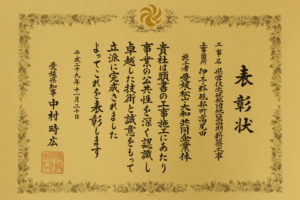 表彰状
工事名
工事箇所 伊予郡砥部町高尾田
施工者 愛媛松山・大和共同企業体
貴社は頭書の工事施工にあたり
事業の公共性を深く認識し
卓越した技術と誠意をもって
立派に完成されました
よってこれを表彰します
平成二十九年十一月二十日
愛媛県知事 中村時広